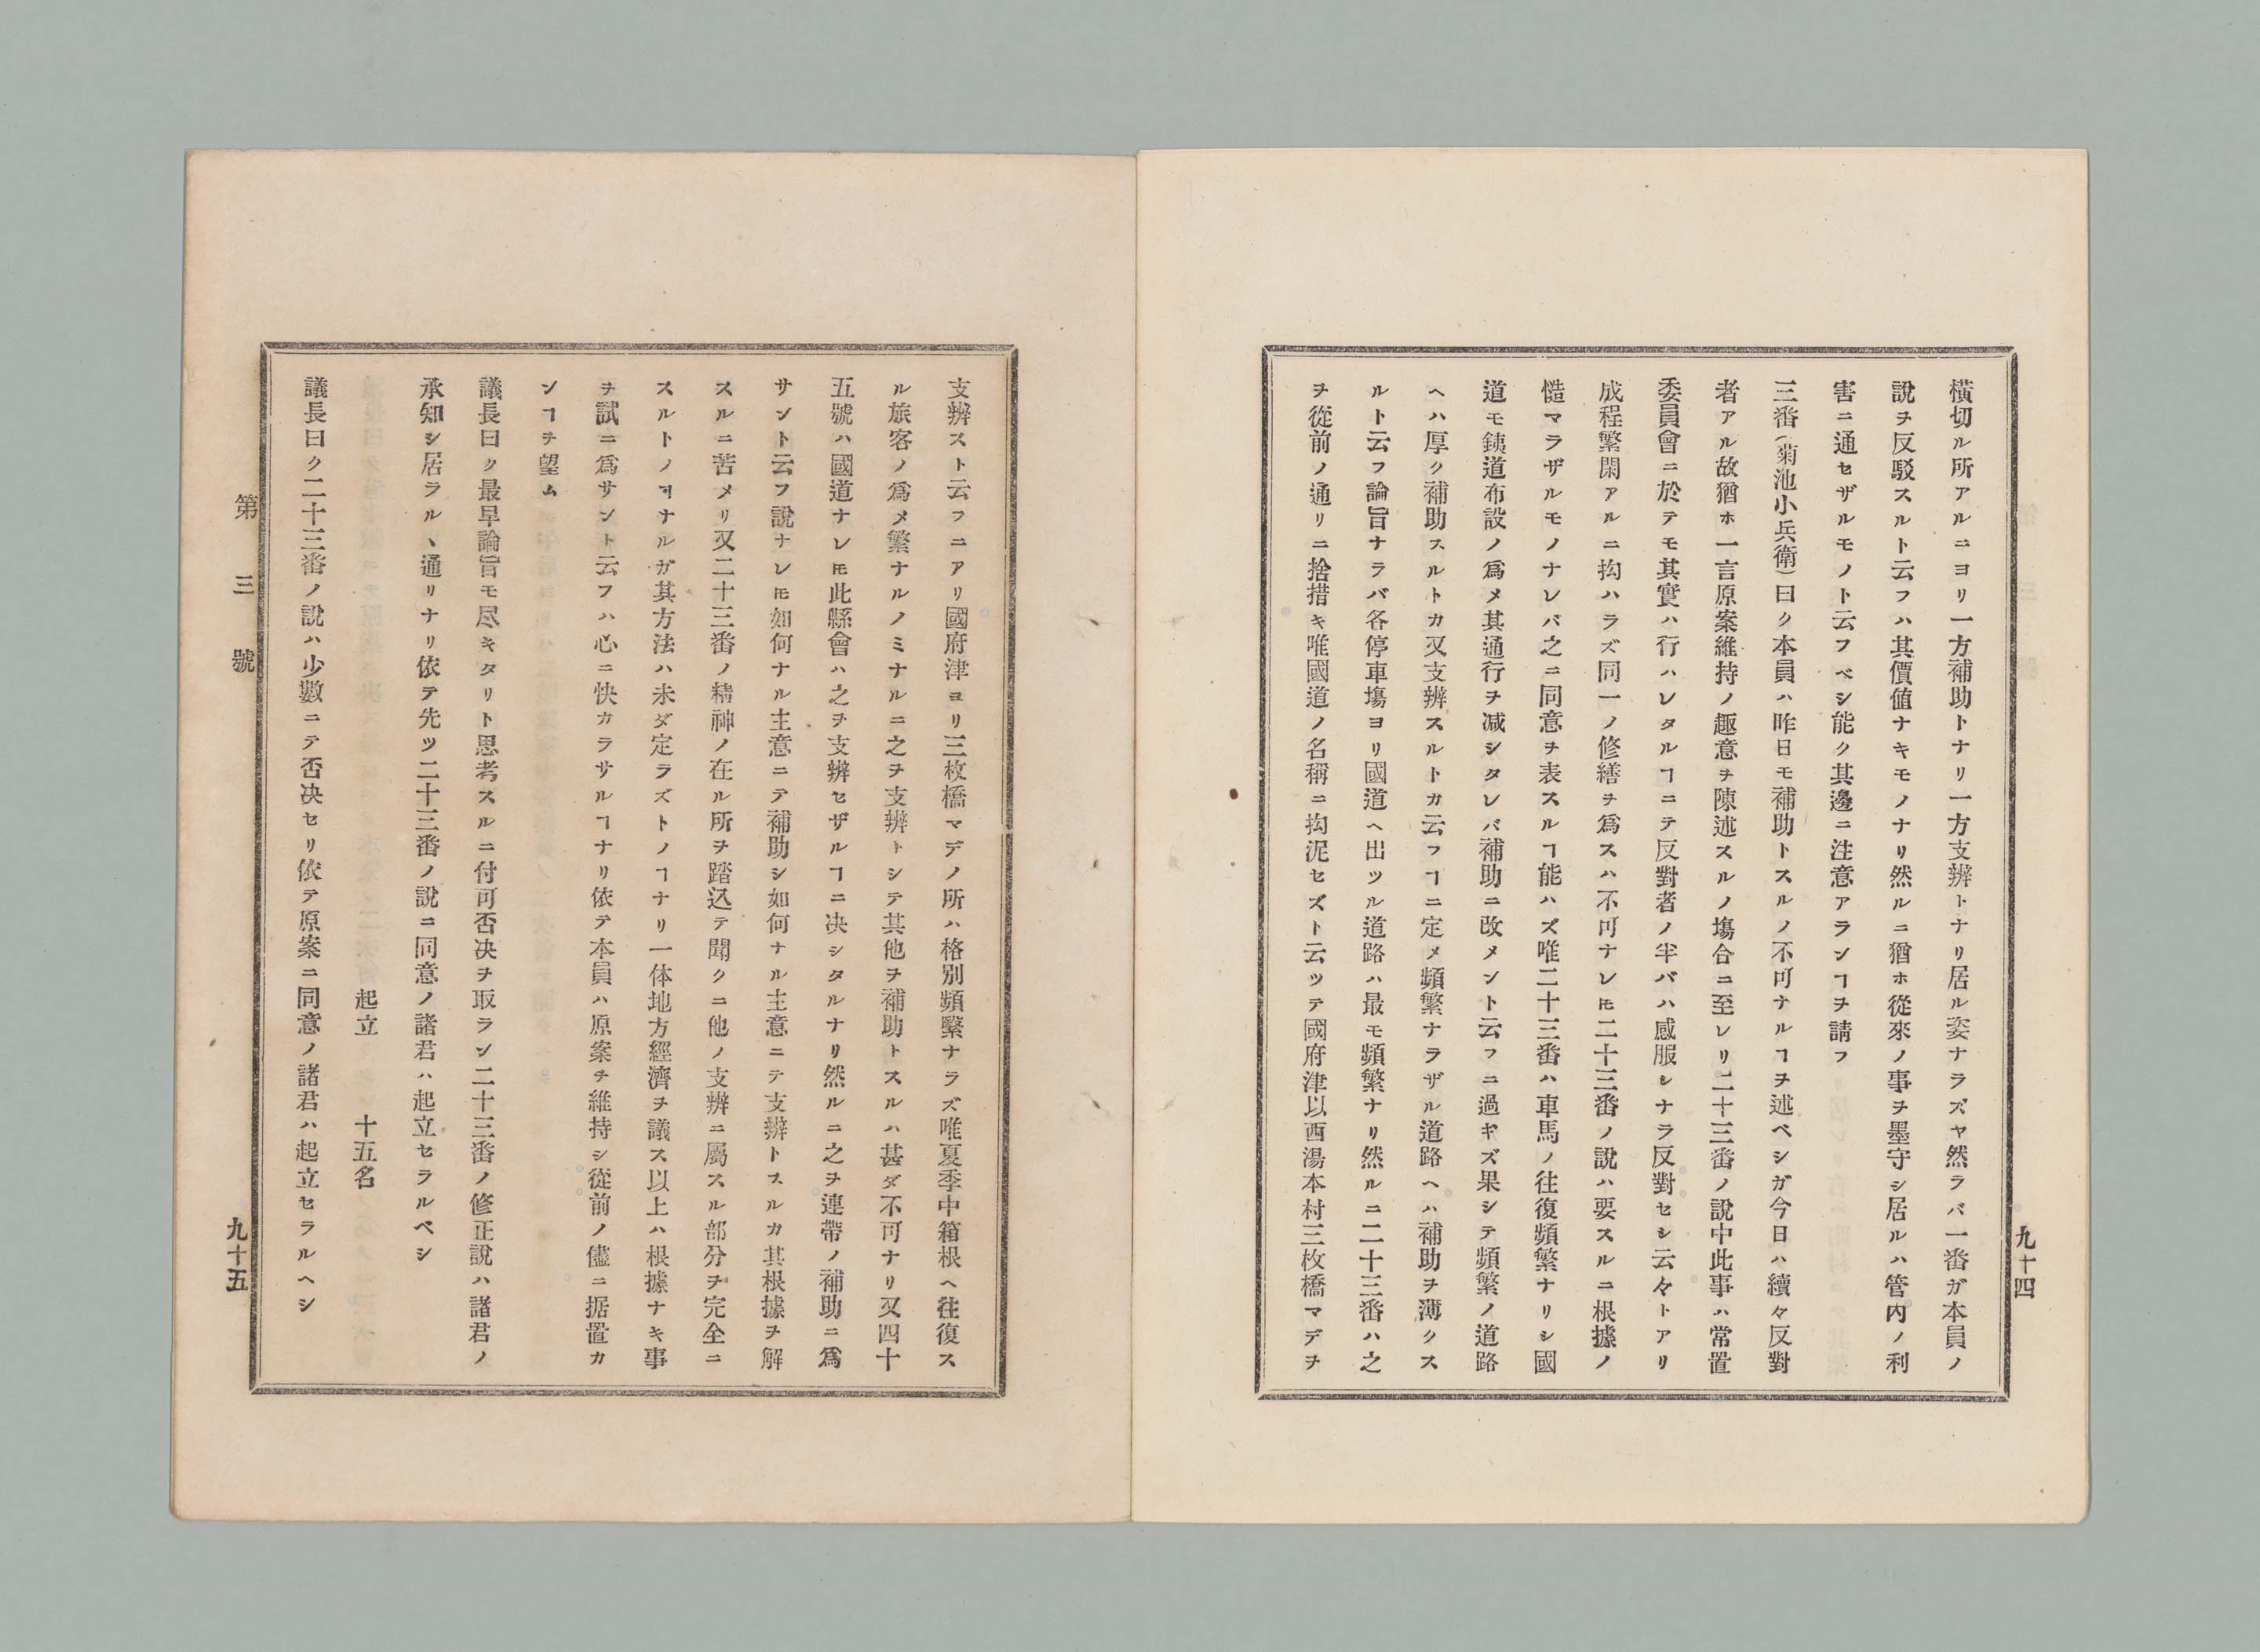 橫切ル所アルニヨリ一方補助トナリ一方支辨トナリ居ル姿ナラズヤ然ラバ一番ガ本員ノ
說ヲ反駁スルト云フハ其價値ナキモノナリ然ルニ猶ホ從來ノ事ヲ墨守シ居ルハ管內ノ利
害ニ通セザルモノト云フベシ能ク其邊ニ注意アランヿヲ請フ
三番(菊池小兵衛)曰ク本員ハ昨日モ補助トスルノ不可ナルヿヲ述ベシガ今日ハ續々反對
者アル故猶ホ一言原案維持ノ趣意ヲ陳述スルノ塲合ニ至レリ二十三番ノ說中此事ハ常置
委員會ニ於テモ其實ハ行ハレタルヿニテ反對者ノ半バハ感服シナラ反對セシ云々トアリ
成程繁閑アルニ拘ハラズ同一ノ修繕ヲ爲スハ不可ナレ𪜈二十三番ノ說ハ要スルニ根據ノ
慥マラザルモノナレバ之ニ同意ヲ表スルヿ能ハズ唯二十三番ハ車馬ノ往復頻繁ナリシ國
道モ銕道布設ノ爲メ其通行ヲ減シタレバ補助ニ改メント云フニ過ギズ果シテ頻繁ノ道路
ヘハ厚ク補助スルトカ又支辨スルトカ云フヿニ定メ頻繁ナラザル道路ヘハ補助ヲ薄クス
ルト云フ論旨ナラバ各停車塲ヨリ國道ヘ出ツル道路ハ最モ頻繁ナリ然ルニ二十三番ハ之
ヲ從前ノ通リニ捨措キ唯國道ノ名稱ニ拘泥セズト云ツテ國府津以西湯本村三枚橋マデヲ
九十四
支辨スト云フニアリ國府津ヨリ三枚橋マデノ所ハ格別頻繄ナラズ唯夏季中箱根ヘ往復ス
ル旅客ノ爲メ繁ナルノミナルニ之ヲ支辨トシテ其他ヲ補助トスルハ甚ダ不可ナリ又四十
五號ハ國道ナレ𪜈此縣會ハ之ヲ支辨セザルヿニ决シタルナリ然ルニ之ヲ連帶ノ補助ニ爲
サント云フ說ナレ𪜈如何ナル主意ニテ補助シ如何ナル主意ニテ支辨トスルカ其根據ヲ解
スルニ苦メリ又二十三番ノ精神ノ在ル所ヲ踏込テ聞クニ他ノ支辨ニ屬スル部分ヲ完全ニ
スルトノヿナルガ其方法ハ未ダ定ラズトノヿナリ一体地方經濟ヲ議ス以上ハ根據ナキ事
ヲ試ニ爲サント云フハ心ニ快カラサルヿナリ依テ本員ハ原案ヲ維持シ從前ノ儘ニ据置カ
ンヿヲ望ム
議長曰ク最早論旨モ尽キタリト思考スルニ付可否决ヲ取ラン二十三番ノ修正說ハ諸君ノ
承知シ居ラル丶通リナリ依テ先ツ二十三番ノ說ニ同意ノ諸君ハ起立セラルベシ
起立　十五名
議長曰ク二十三番ノ說ハ少數ニテ否决セリ依テ原案ニ同意ノ諸君ハ起立セラルヘシ
第三號
九十五